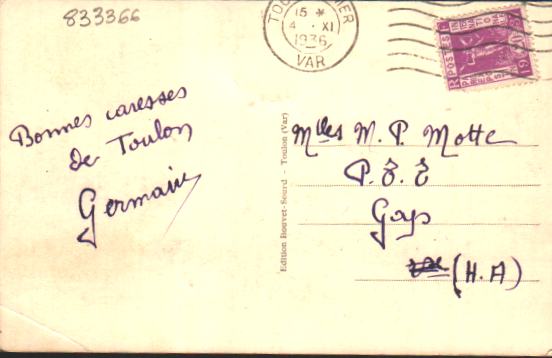 833366
15 *
4 · XI
1936
VAR
POSTES
Bonnes caresses
de Toulon
Germaine
Edition Bouvet-Sourd - Toulon (Var)
Mlles M. P. Motte
P. T. T.
Gap
(H. A)